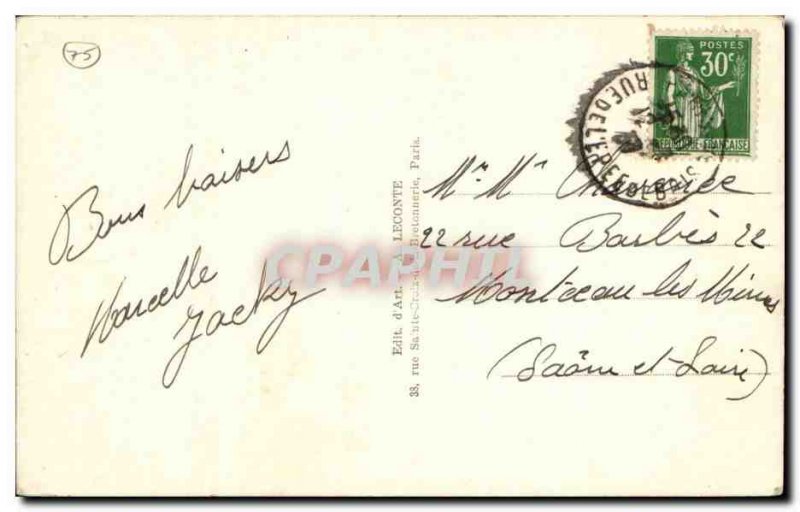 75
POSTES
30c
REPUBLIQUE FRANÇAISE
RUE DE L'EPEE DE BOIS
Bons baisers
Marcelle
Jacky
Edit. d'Art. A LECONTE
38, rue Sainte-Croix-de-la-Bretonnerie, Paris.
CPAPHIL
Mr Me
22 rue Barbès 22
Montceau les Mines
(Saône et Loire)